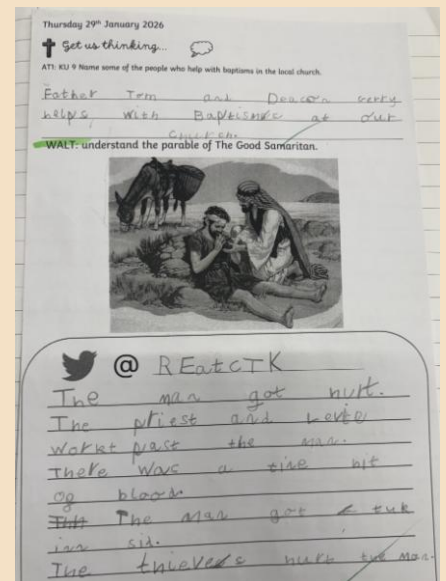 Thursday 29th January 2026
Get us thinking...
AT1: KU 9 Name some of the people who help with baptisms in the local church.
Father Tom and Deacon Gerry
helps with Baptisms at our
Church.
WALT: understand the parable of The Good Samaritan.
@ REatCTK
The man got hurt.
The priest and Levte
workt past the man.
There was a tine bit
og blood.
The man got tuk
inn sid.
The thieveds hurt the man.